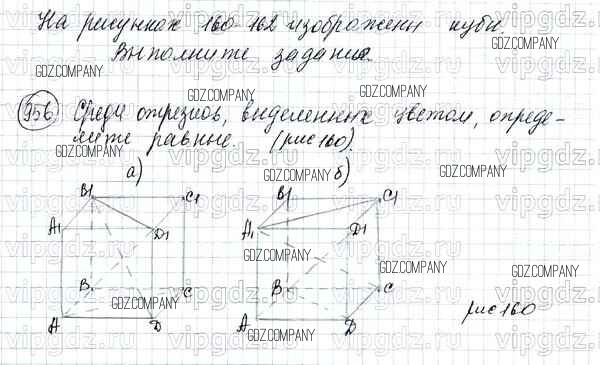 На рисунках 160-162 изображены кубы.
Выполните задание.
GDZ.COMPANY GDZ.COMPANY
956 Среди отрезков, выделенных цветом, опреде-
GDZ.COMPANY
лите равные. (рис 160).
GDZ.COMPANY GDZ.COMPANY
а) б)
GDZ.COMPANY
B1 C1 B1 C1
A1 D1 A1 D1
GDZ.COMPANY
GDZ.COMPANY GDZ.COMPANY
B C B C
GDZ.COMPANY GDZ.COMPANY
рис 160
A D A D
GDZ.COMPANY
vipgdz.ru